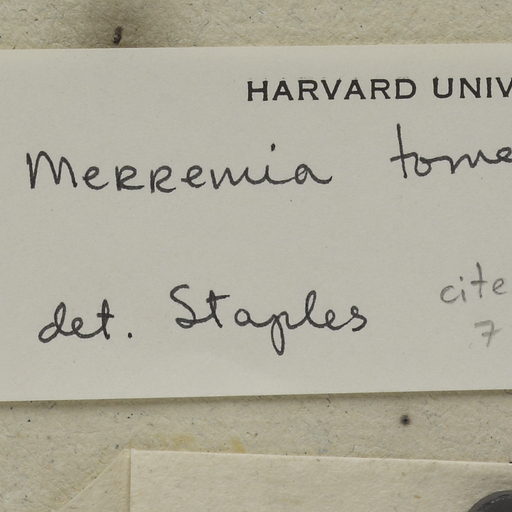 HARVARD UNIV
Merremia tome
det. Staples cite
7